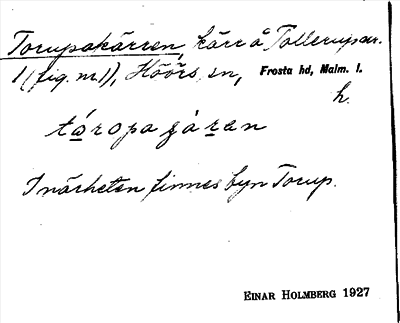 Torupakärren, kärr å Tollerup ar.
1 (fig. nr 1), Höörs sn, Frosta hd, Malm. l.
h.
táropa ʒàran
I närheten finnes byn Torup.
EINAR HOLMBERG 1927